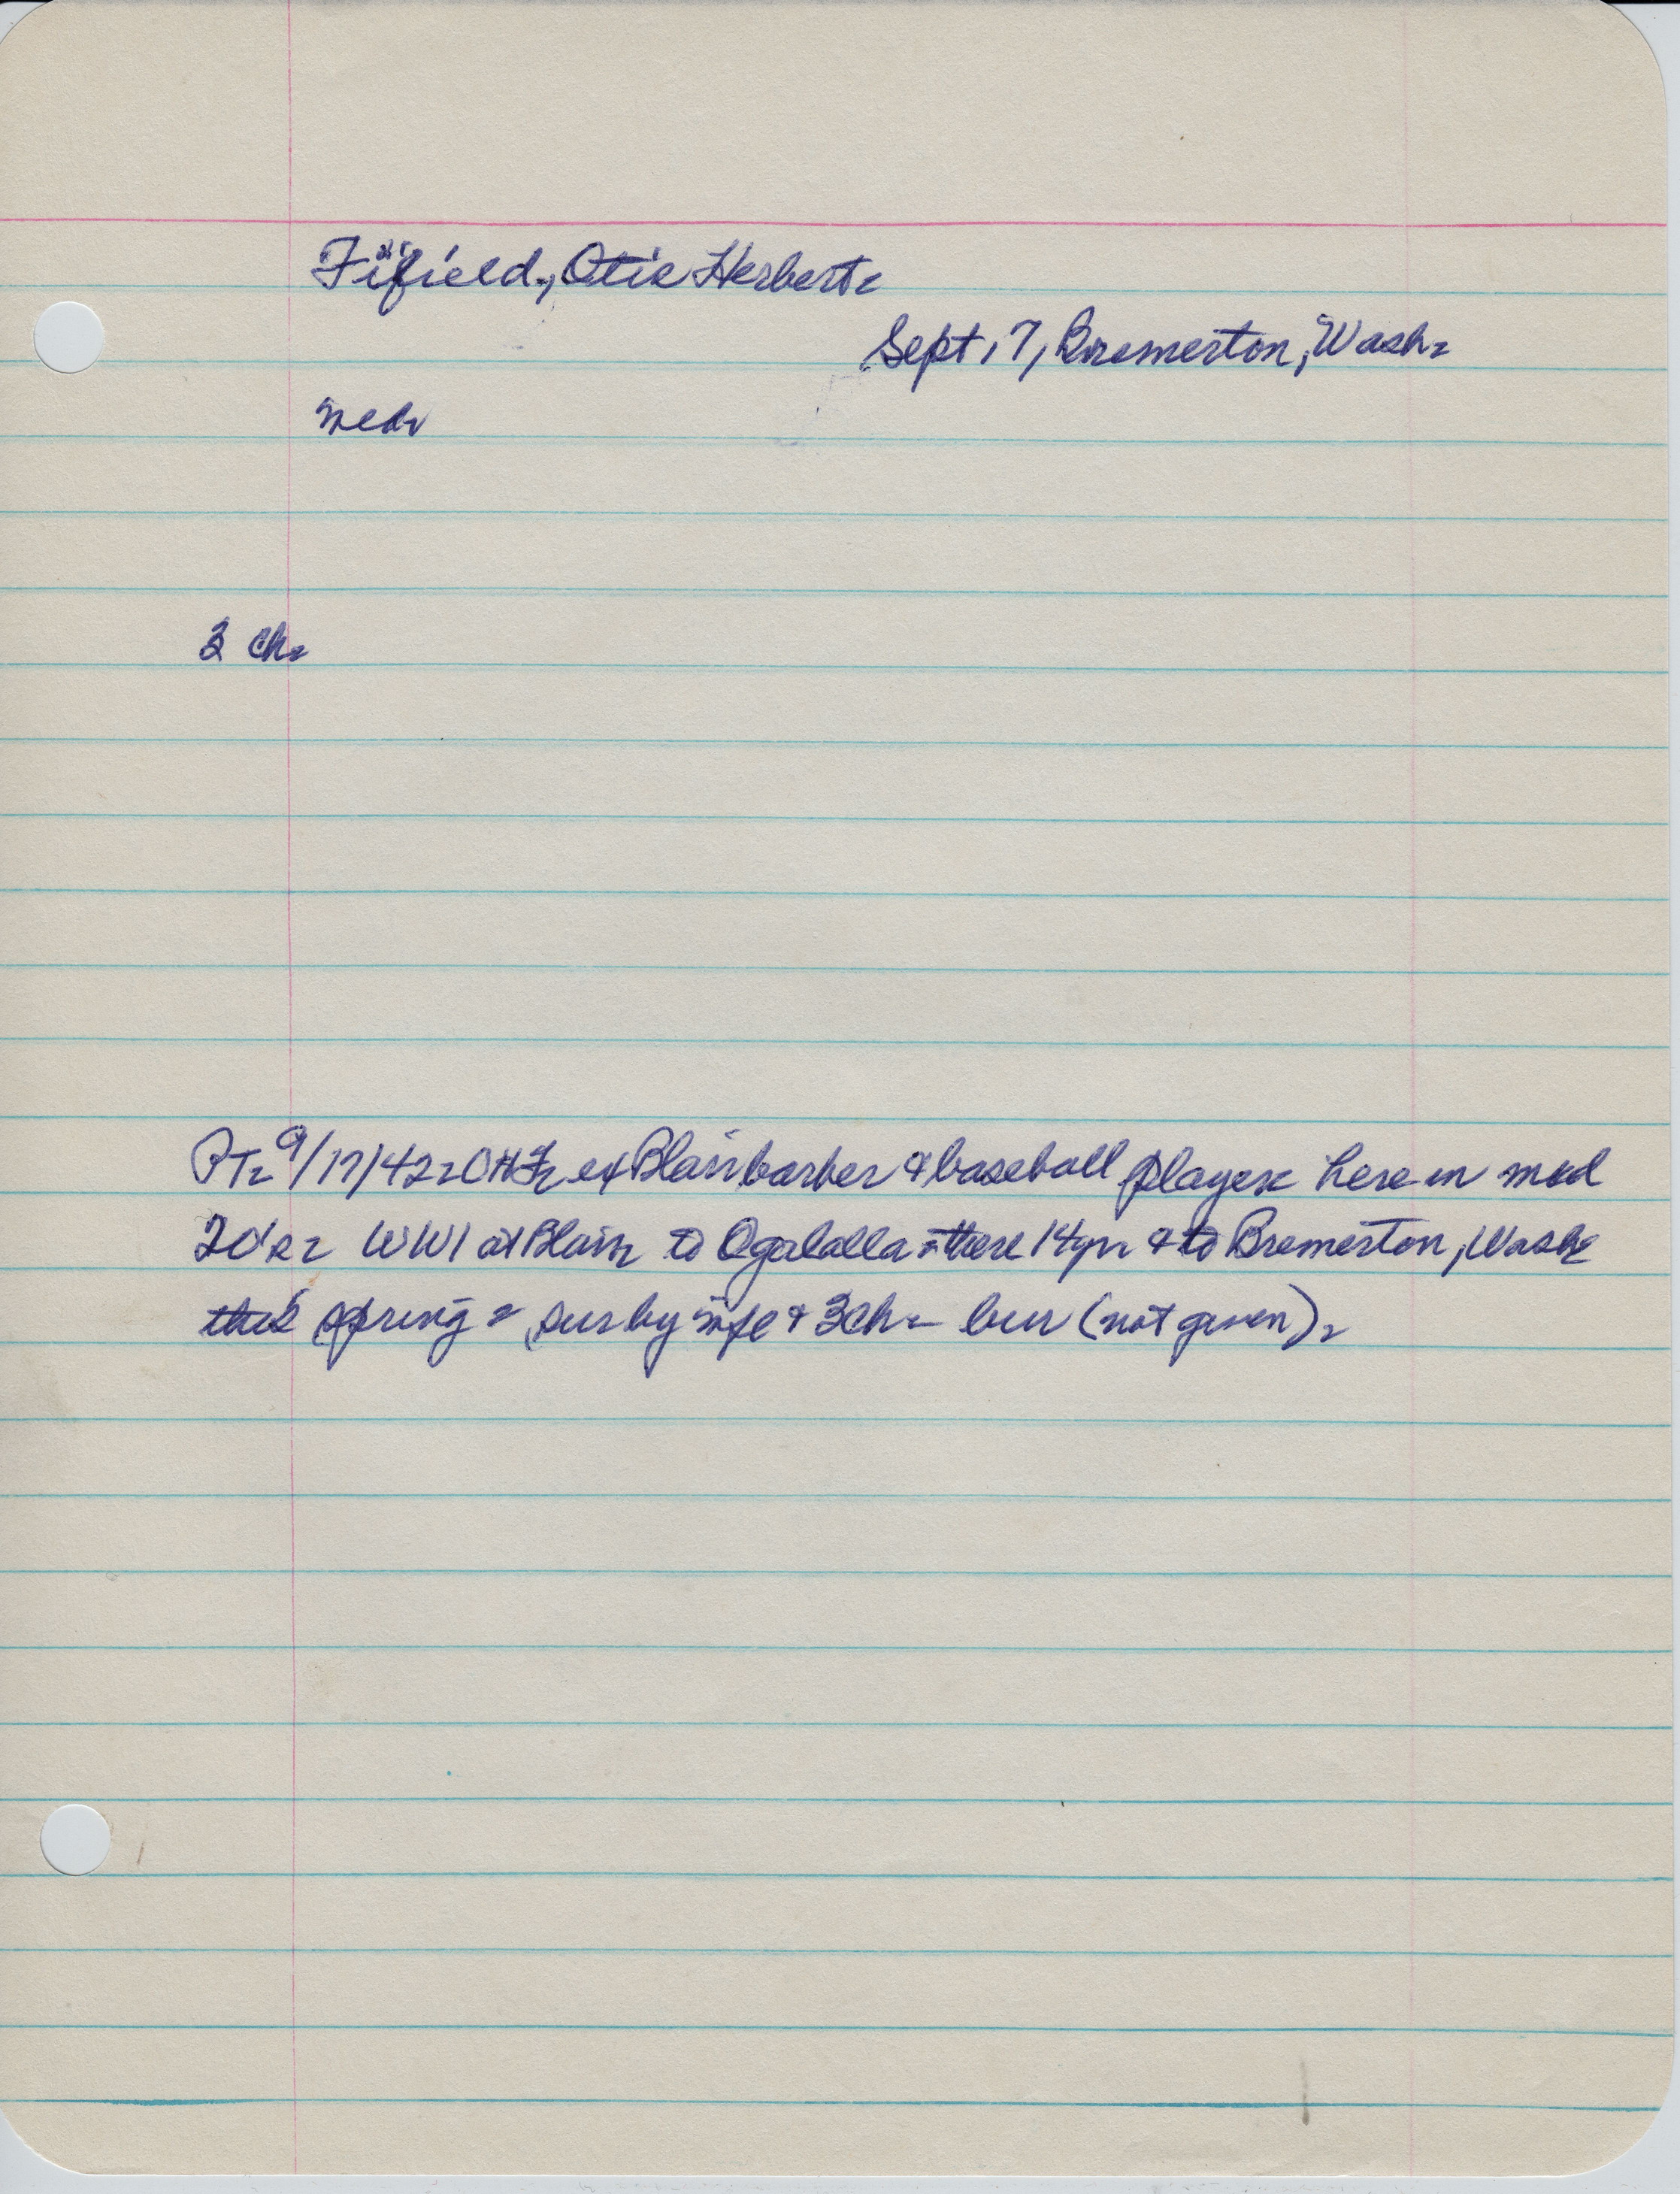 Fifield, Otis Herbert.
Sept. 7, Bremerton, Wash.
med.
3 ch.
PT. 9/17/42. OHF. ex Blair barber & baseball player. here in mid
20's. WW1 at Blair to Ogalalla - there 14 yr. & to Bremerton, Wash
this spring. sur by wife & 3 ch. - bur (not given).